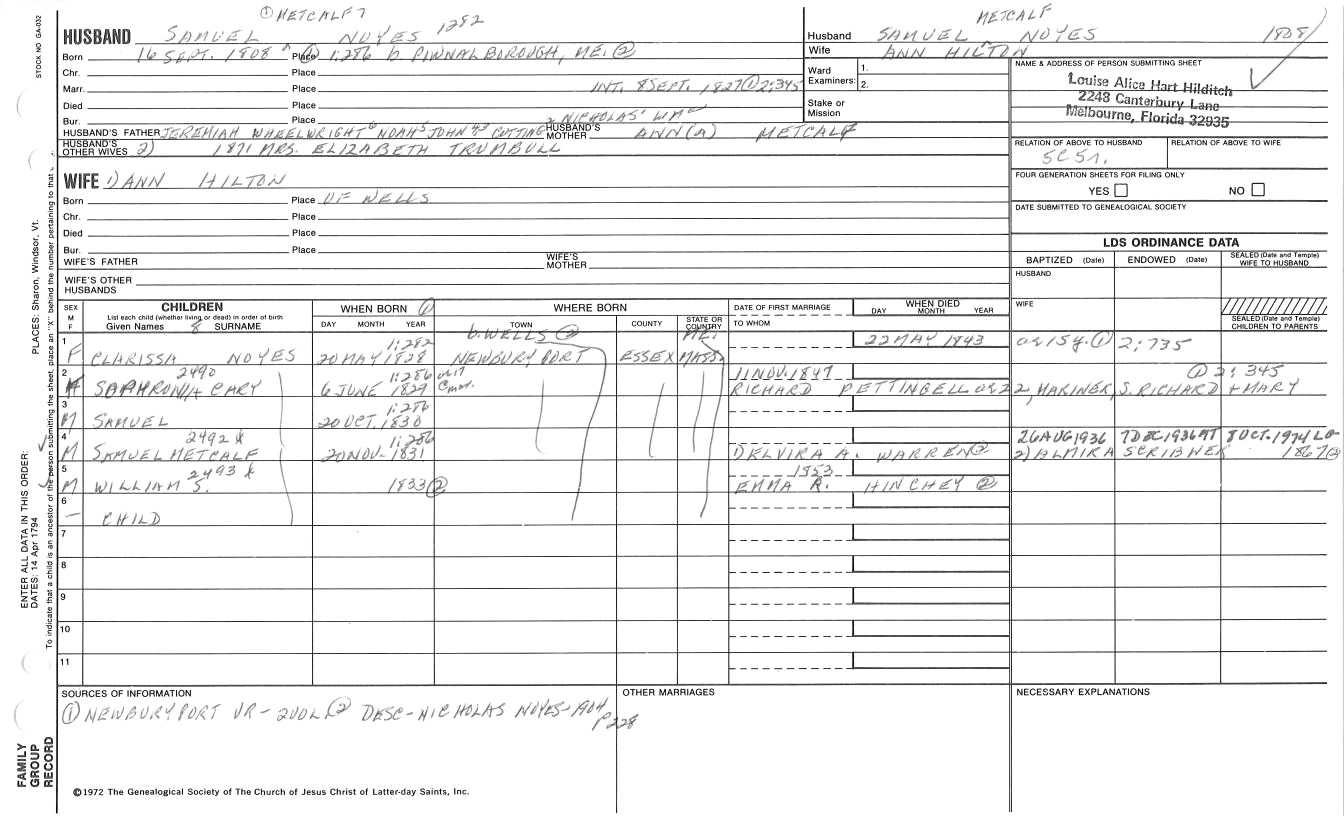 ① METCALF 7
1282
METCALF
HUSBAND SAMUEL NOYES
Husband SAMUEL NOYES 1808
Wife ANN HILTON
Born 16 SEPT. 1808 Place 1:286 b PIWNALBOROUGH, ME. ②
Chr. Place
Marr. Place INT. 8 SEPT. 1827 ① 2:345
Died Place
Bur. Place
Ward Examiners: 1.
2.
Stake or Mission
NAME & ADDRESS OF PERSON SUBMITTING SHEET
Louise Alice Hart Hilditch
2248 Canterbury Lane
Melbourne, Florida 32935
2 NICHOLAS' WM
HUSBAND'S FATHER JEREMIAH WHEELWRIGHT 6 NOAH 5 JOHN 43 CUTTING HUSBAND'S MOTHER ANN(A) METCALF
HUSBAND'S OTHER WIVES 2) 1871 MRS. ELIZABETH TRUMBULL
RELATION OF ABOVE TO HUSBAND RELATION OF ABOVE TO WIFE
5C5r.
WIFE 1) ANN HILTON
Born Place OF WELLS
Chr. Place
Died Place
Bur. Place
WIFE'S FATHER WIFE'S MOTHER
WIFE'S OTHER HUSBANDS
FOUR GENERATION SHEETS FOR FILING ONLY
YES NO
DATE SUBMITTED TO GENEALOGICAL SOCIETY
LDS ORDINANCE DATA
BAPTIZED (Date) ENDOWED (Date) SEALED (Date and Temple) WIFE TO HUSBAND
HUSBAND
WIFE
SEALED (Date and Temple) CHILDREN TO PARENTS
SEX M F
CHILDREN
List each child (whether living or dead) in order of birth
Given Names 8 SURNAME
WHEN BORN ①
DAY MONTH YEAR
WHERE BORN
TOWN COUNTY STATE OR COUNTRY
DATE OF FIRST MARRIAGE
TO WHOM
WHEN DIED
DAY MONTH YEAR
1:282 b. WELLS ② ME. 22 MAY 1843 ae 15y. ① 2:735
1 F CLARISSA NOYES 20 MAY 1828 NEWBURYPORT ESSEX MASS.
2490 1:286 11 NOV. 1847 ① 2:345
2 SOPHRONIA CARY 6 JUNE 1829 RICHARD PETTINGELL ae 22, MARINER, S. RICHARD + MARY
1:286
3 M SAMUEL 20 OCT. 1830
2492 * 1:286 26 AUG 1936 7 DEC 1936 8 OCT. 1974 LO
4 M SAMUEL METCALF 20 NOV. 1831 DELVIRA A. WARREN ② 2) ALMIRA SCRIBNER 1867 ②
2493 * 1853
5 M WILLIAM S. 1833 ② EMMA R. HINCHEY ②
6 – CHILD
7
8
9
10
11
SOURCES OF INFORMATION
① NEWBURYPORT VR – 2VOL ② DESC – NICHOLAS NOYES – 1904 P228
OTHER MARRIAGES
NECESSARY EXPLANATIONS
©1972 The Genealogical Society of The Church of Jesus Christ of Latter-day Saints, Inc.
STOCK NO GA-032
PLACES: Sharon, Windsor, Vt.
ENTER ALL DATA IN THIS ORDER:
DATES: 14 Apr 1794
To indicate that a child is an ancestor of the person submitting the sheet, place an "X" behind the number pertaining to that
FAMILY GROUP RECORD